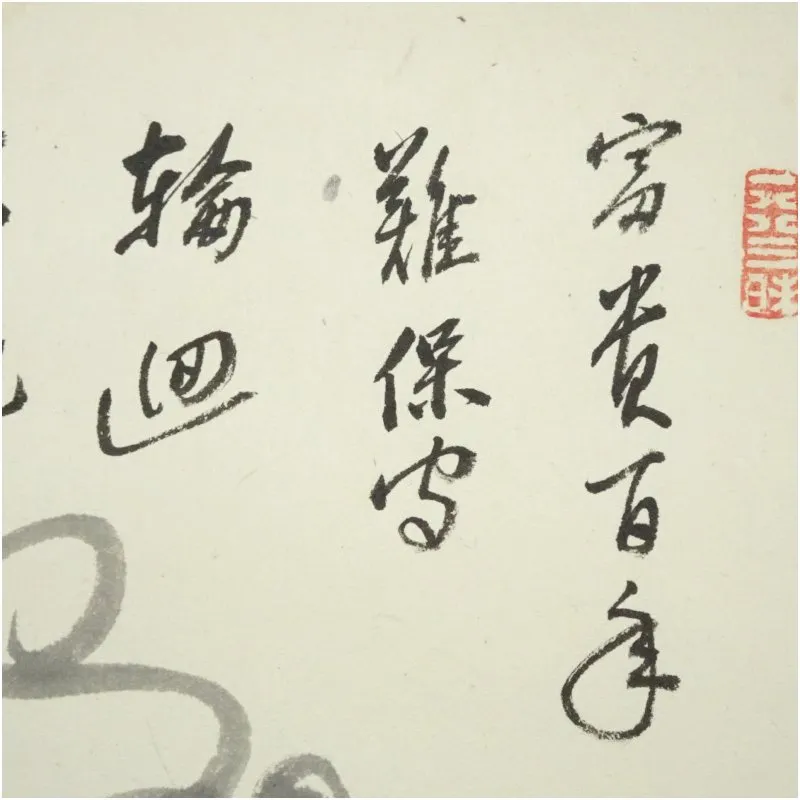 富貴百年
難保守
輪迴